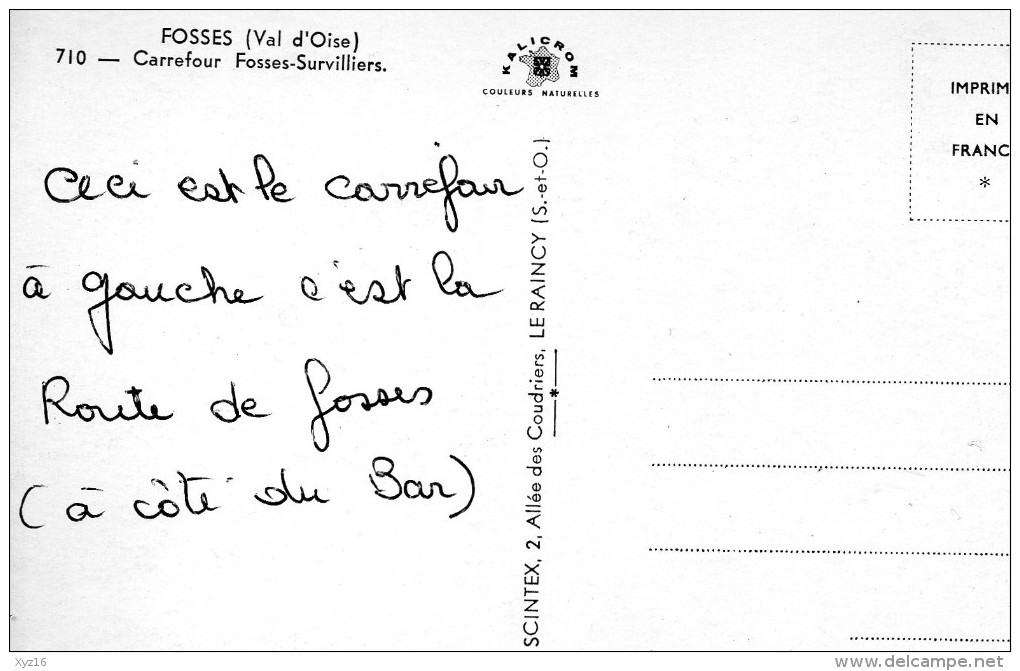 FOSSES (Val d'Oise)
710 — Carrefour Fosses-Survilliers.
KALICROM
COULEURS NATURELLES
IMPRIM
EN
FRANC
*
Ceci est le carrefour
à gauche c'est la
Route de fosses
(à côté du Bar)
SCINTEX, 2, Allée des Coudriers, LE RAINCY (S.-et-O.)
*
Xyz16
www.delcampe.net